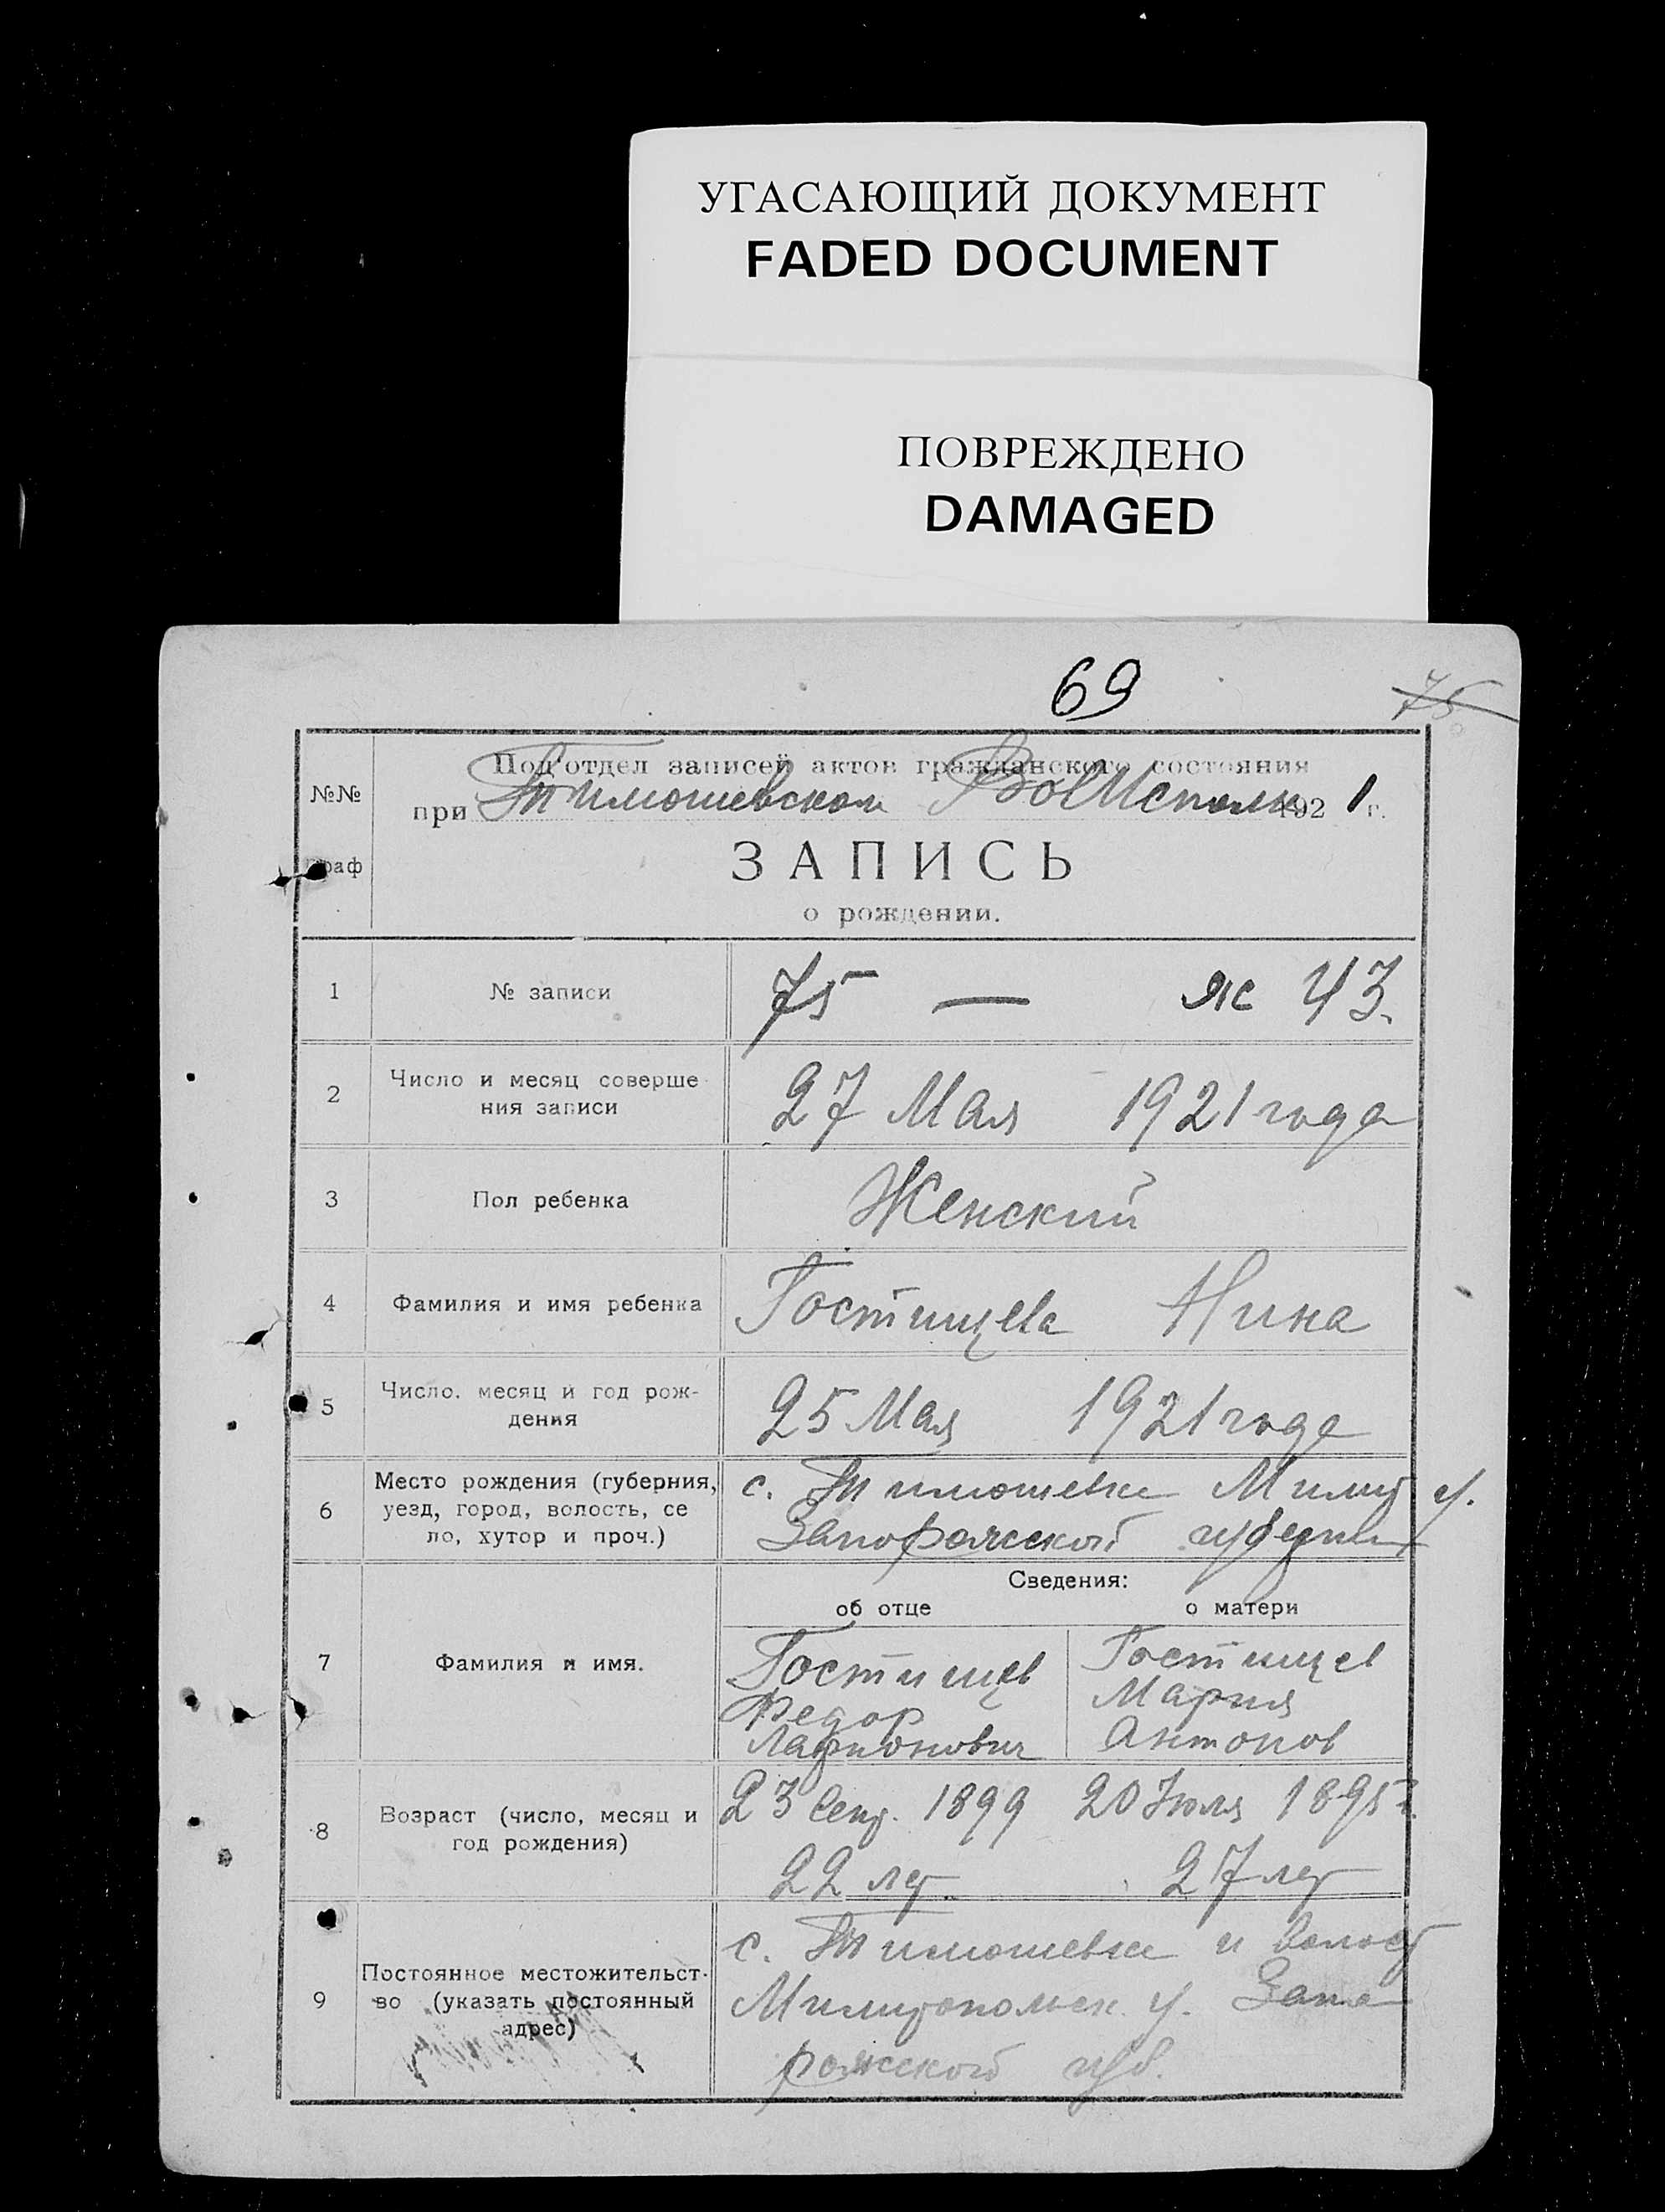 УГАСАЮЩИЙ ДОКУМЕНТ
FADED DOCUMENT
ПОВРЕЖДЕНО
DAMAGED
69
75
№№
граф
Под'отдел записей актов гражданского состояния
при Тимошевском ВолИсполк 1921 г.
ЗАПИСЬ
о рождении.
1 № записи 75 — ж 43.
2 Число и месяц соверше
ния записи
27 Мая 1921 года
3 Пол ребенка Женский
4 Фамилия и имя ребенка Гостищева Нина
5 Число. месяц и год рож-
дения
25 Мая 1921 года
6 Место рождения (губерния,
уезд, город, волость, се
ло, хутор и проч.)
с. Тимошевке Милит у.
Запорожской губернии
Сведения:
об отце о матери
7 Фамилия и имя.
Гостищев
Федор
Ларионович
Гостищев
Мария
Антонов
8 Возраст (число, месяц и
год рождения)
23 Сент. 1899 20 Июля 1895 г.
22 лет 27 лет
9 Постоянное местожительст-
во (указать постоянный
адрес)
с. Тимошевке и волост
Милитопольск. у. Запо
рожской губ.